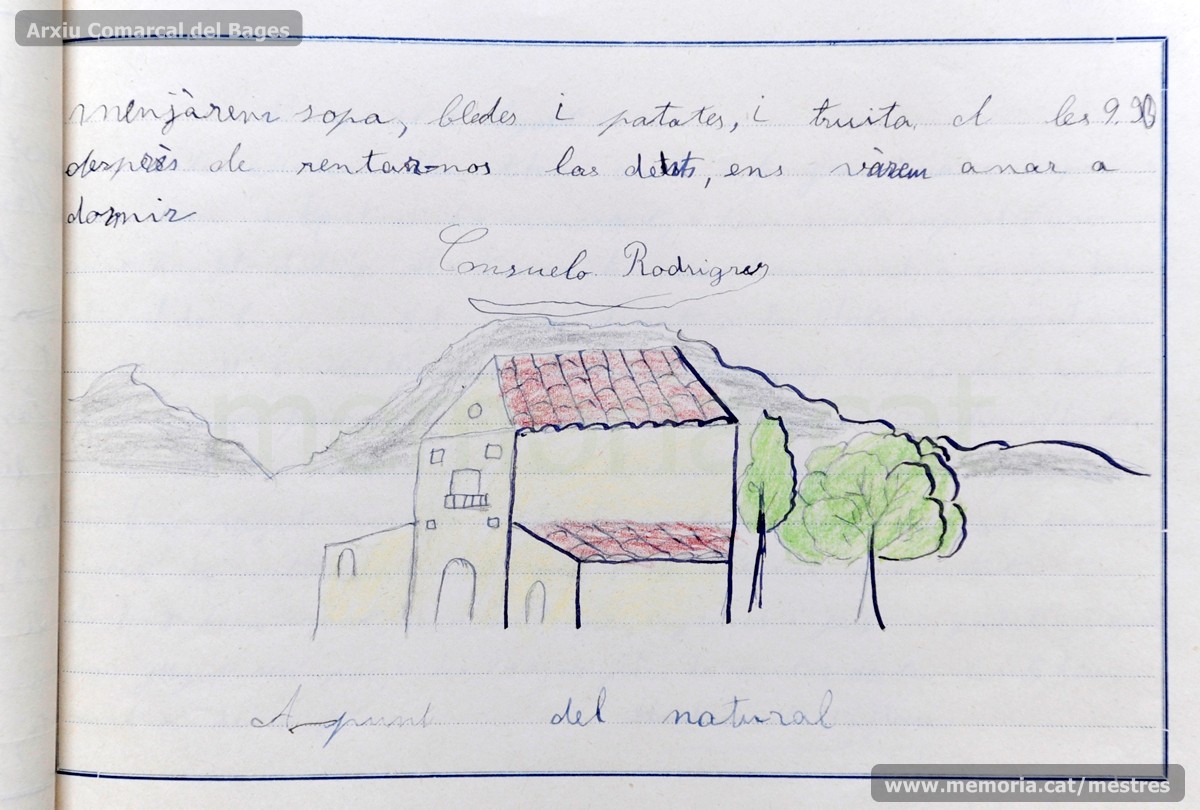 Arxiu Comarcal del Bages
menjàrem sopa, bledes i patates, i truita. A les 9.
després de rentar-nos las dents, ens vàrem anar a
dormir
Consuelo Rodrigrez
Apunt del natural
www.memoria.cat/mestres